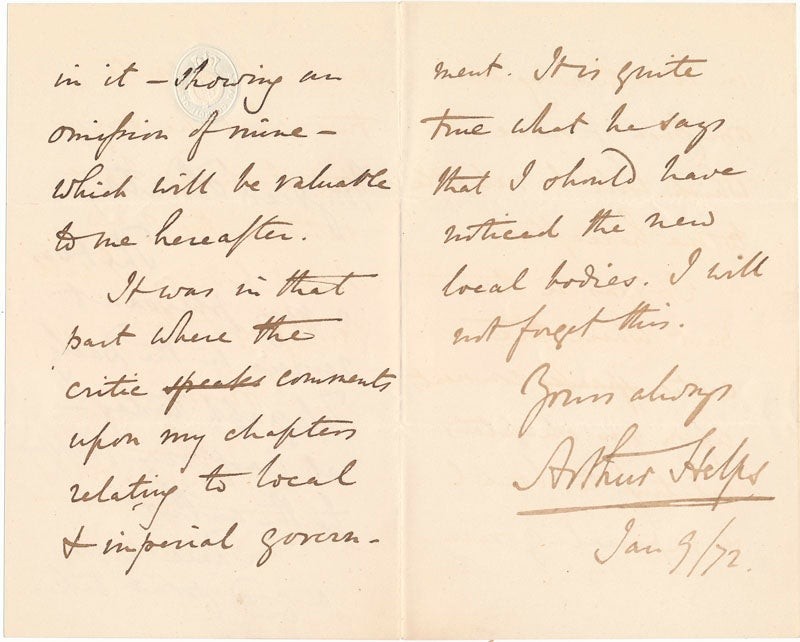 in it – showing an
omission of mine –
which will be valuable
to me hereafter.
It was in that
part where the
critic speaks comments
upon my chapters
relating to local
& imperial govern-
ment. It is quite
true what he says
that I should have
noticed the new
local bodies. I will
not forget this.
Yours always
Arthur Helps
Jan 9/72.